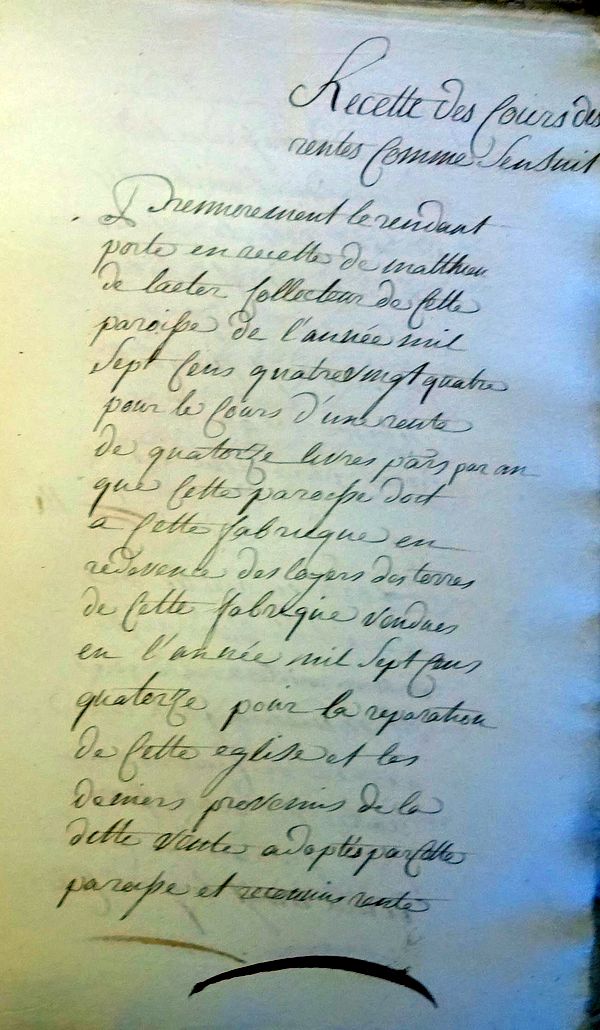 Recette des Cours des
rentes Comme Sensuit
Premierement le rendant
porte en recette de matthieu
de laeter Collecteur de Cette
paroisse de l'année mil
Sept Cens quatrevingt quatre
pour le Cours d'une rente
de quatorze livres paris par an
que Cette paroisse doit
a Cette fabricque en
redevence des loyers des terres
de Cette fabrique vendues
en l'année mil Sept Cens
quatorze pour la reparation
de Cette eglise et les
deniers provenus de la
ditte vente adoptés par Cette
paroisse et rente